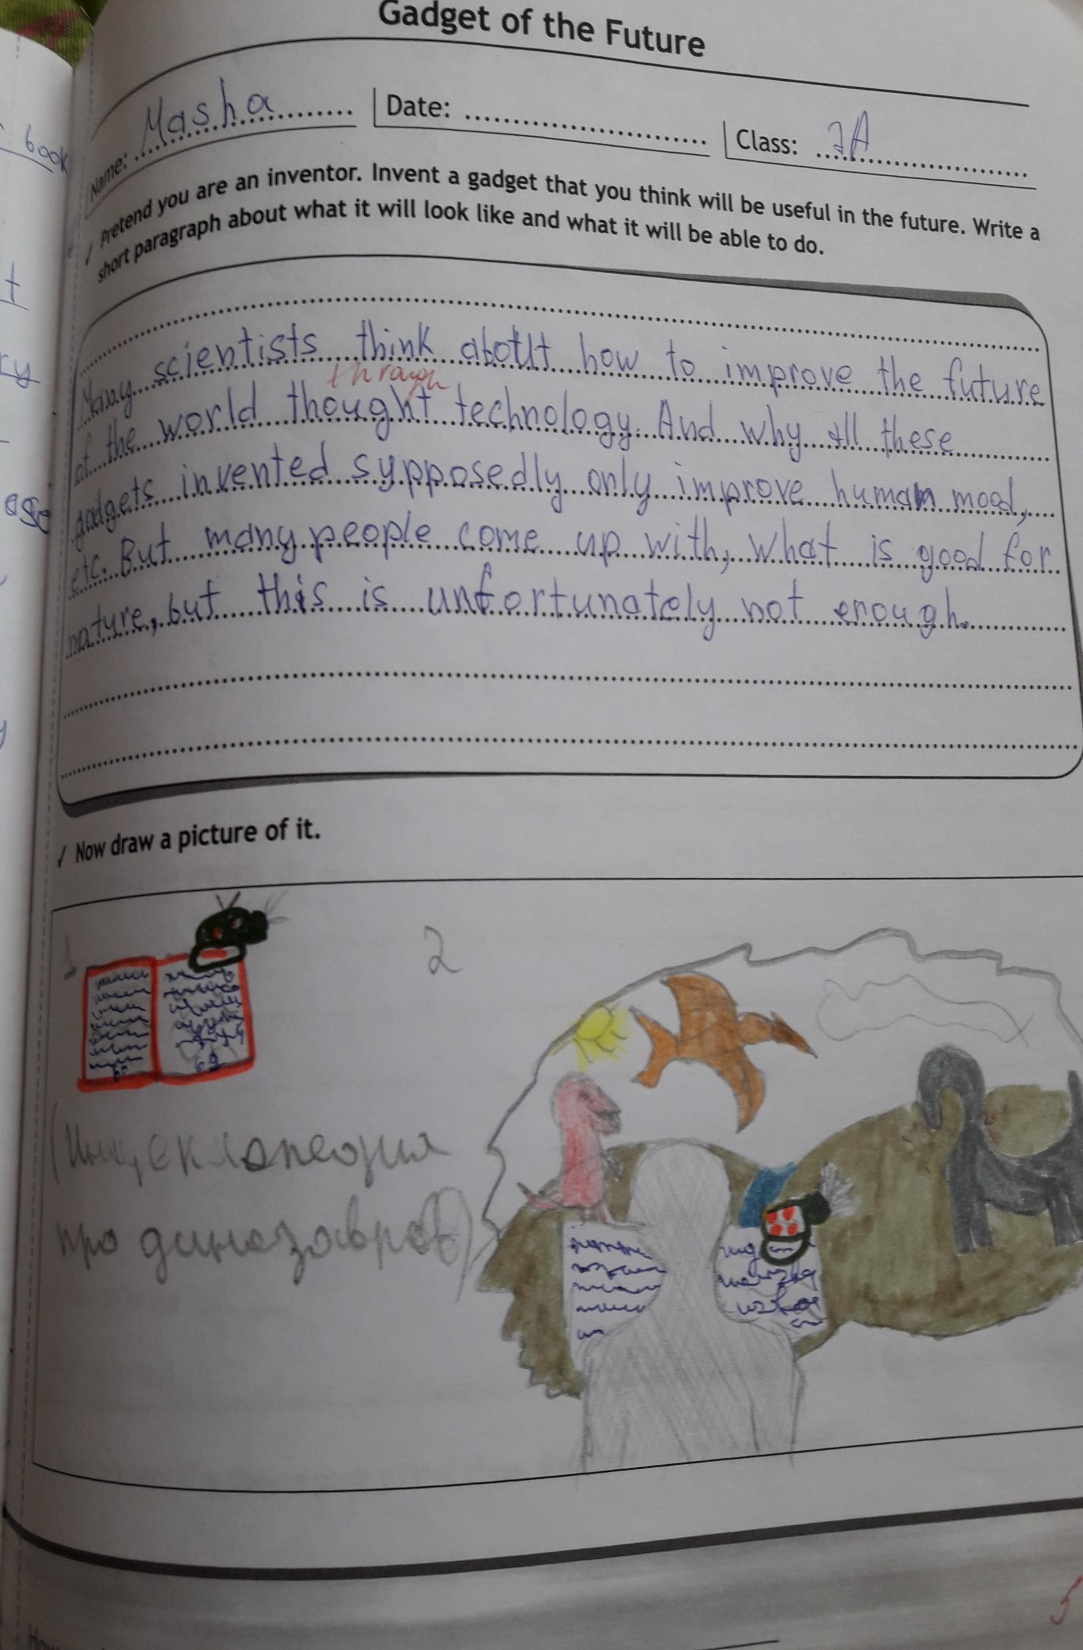 Gadget of the Future
book
Name: Masha Date: Class: 7A
✓ Pretend you are an inventor. Invent a gadget that you think will be useful in the future. Write a
short paragraph about what it will look like and what it will be able to do.
Many scientists think about how to improve the future
through
of the world thought technology. And why all these
gadgets invented sypposedly only improve human mood,
etc. But many people come up with, what is good for
nature, but this is unfortunately not enough.
✓ Now draw a picture of it.
1 2
(Инцеклопедия
про динозавров)
5